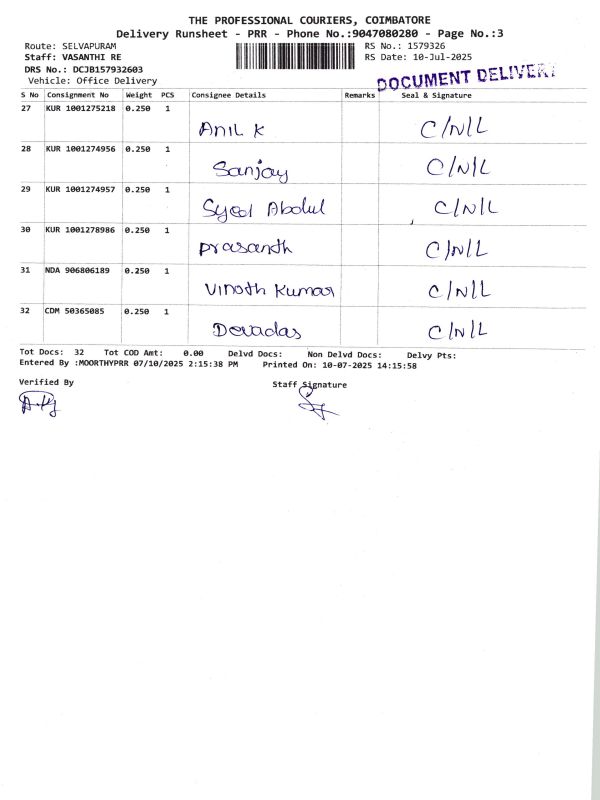 THE PROFESSIONAL COURIERS, COIMBATORE
Delivery Runsheet - PRR - Phone No.:9047080280 - Page No.:3
Route: SELVAPURAM RS No.: 1579326
Staff: VASANTHI RE RS Date: 10-Jul-2025
DRS No.: DCJB157932603
Vehicle: Office Delivery
DOCUMENT DELIVERY
S No Consignment No Weight PCS Consignee Details Remarks Seal & Signature
27 KUR 1001275218 0.250 1 Anil K C/N/L
28 KUR 1001274956 0.250 1 Sanjay C/N/L
29 KUR 1001274957 0.250 1 Syed Abdul C/N/L
30 KUR 1001278986 0.250 1 Prasanth C/N/L
31 NDA 906806189 0.250 1 Vinoth Kumar C/N/L
32 CDM 50365085 0.250 1 Devadas C/N/L
Tot Docs: 32 Tot COD Amt: 0.00 Delvd Docs: Non Delvd Docs: Delvy Pts:
Entered By :MOORTHYPRR 07/10/2025 2:15:38 PM Printed On: 10-07-2025 14:15:58
Verified By Staff Signature